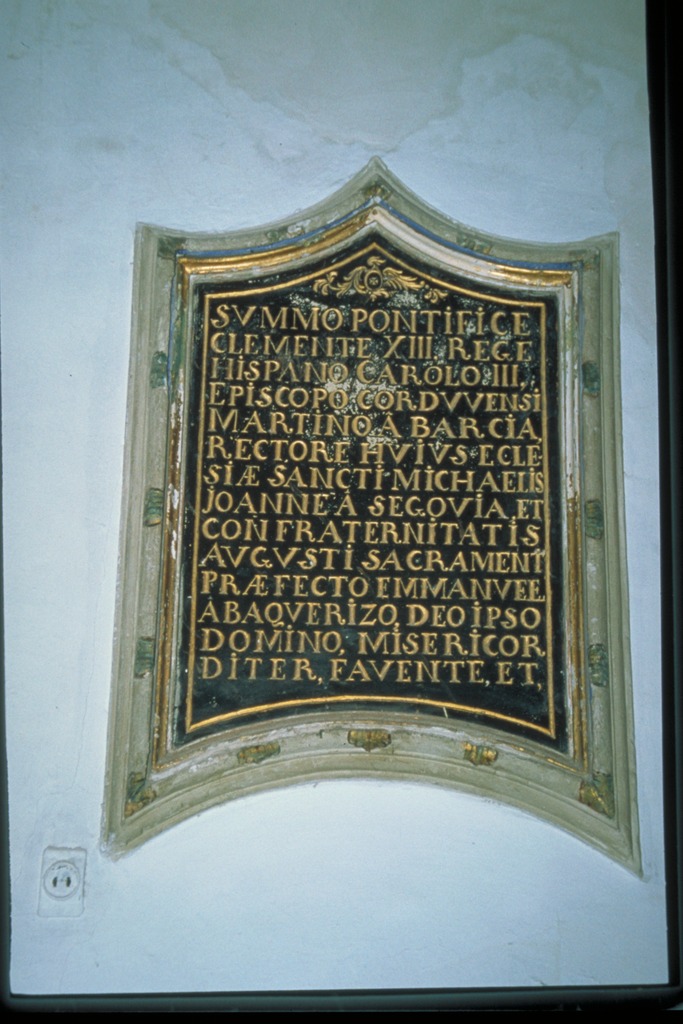 SVMMO PONTIFICE
CLEMENTE XIII, REGE
HISPANO CAROLO III,
EPISCOPO CORDVVENSI
MARTINO Â BARCIA,
RECTORE HVIVS ECLE
SIÆ SANCTI MICHAELIS
JOANNE Â SEGOVIA ET
CON FRATERNITATIS
AVGVSTI SACRAMENTI
PRÆFECTO EMMANVEE
ÂBAQVERIZO, DEO IPSO
DOMINO, MISERICOR
DITER, FAVENTE, ET,